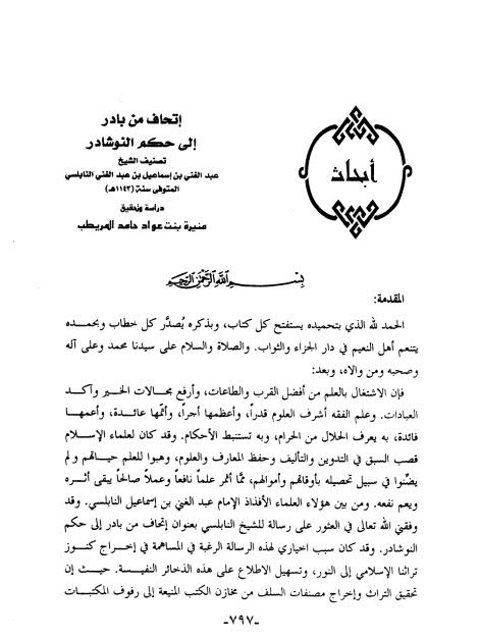 إتحاف من بادر
إلى حكم النوشادر
تصنيف الشيخ
عبد الغني بن إسماعيل بن عبد الغني النابلسي
المتوفى سنة (١١٤٣هـ)
دراسة وتحقيق
منيرة بنت عواد حامد المريطب
أبحاث
بسم الله الرحمن الرحيم
المقدمة:
الحمد لله الذي بتحميده يستفتح كل كتاب، وبذكره يُصدَّر كل خطاب وبحمده
يتنعم أهل النعيم في دار الجزاء والثواب. والصلاة والسلام على سيدنا محمد وعلى آله
وصحبه ومن والاه، وبعد:
فإن الاشتغال بالعلم من أفضل القرب والطاعات، وأرفع مجالات الخير وآكد
العبادات. وعلم الفقه أشرف العلوم قدراً، وأعظمها أجراً، وأتمّها عائدة، وأعمها
فائدة، به يعرف الحلال من الحرام، وبه تستنبط الأحكام. وقد كان لعلماء الإسلام
قصب السبق في التدوين والتأليف وحفظ المعارف والعلوم، وهبوا للعلم حياتهم ولم
يضنّوا في سبيل تحصيله بأوقاتهم وأموالهم، ممَّا أثمر علماً نافعاً وعملاً صالحاً يبقى أثره
ويعم نفعه. ومن بين هؤلاء العلماء الأفذاذ الإمام عبد الغني بن إسماعيل النابلسي. وقد
وفقني الله تعالى في العثور على رسالة للشيخ النابلسي بعنوان إتحاف من بادر إلى حكم
النوشادر. وقد كان سبب اختياري لهذه الرسالة الرغبة في المساهمة في إخراج كنوز
تراثنا الإسلامي إلى النور، وتسهيل الاطلاع على هذه الذخائر النفيسة. حيث إن
تحقيق التراث وإخراج مصنفات السلف من مخازن الكتب المنيعة إلى رفوف المكتبات
-٧٩٧-